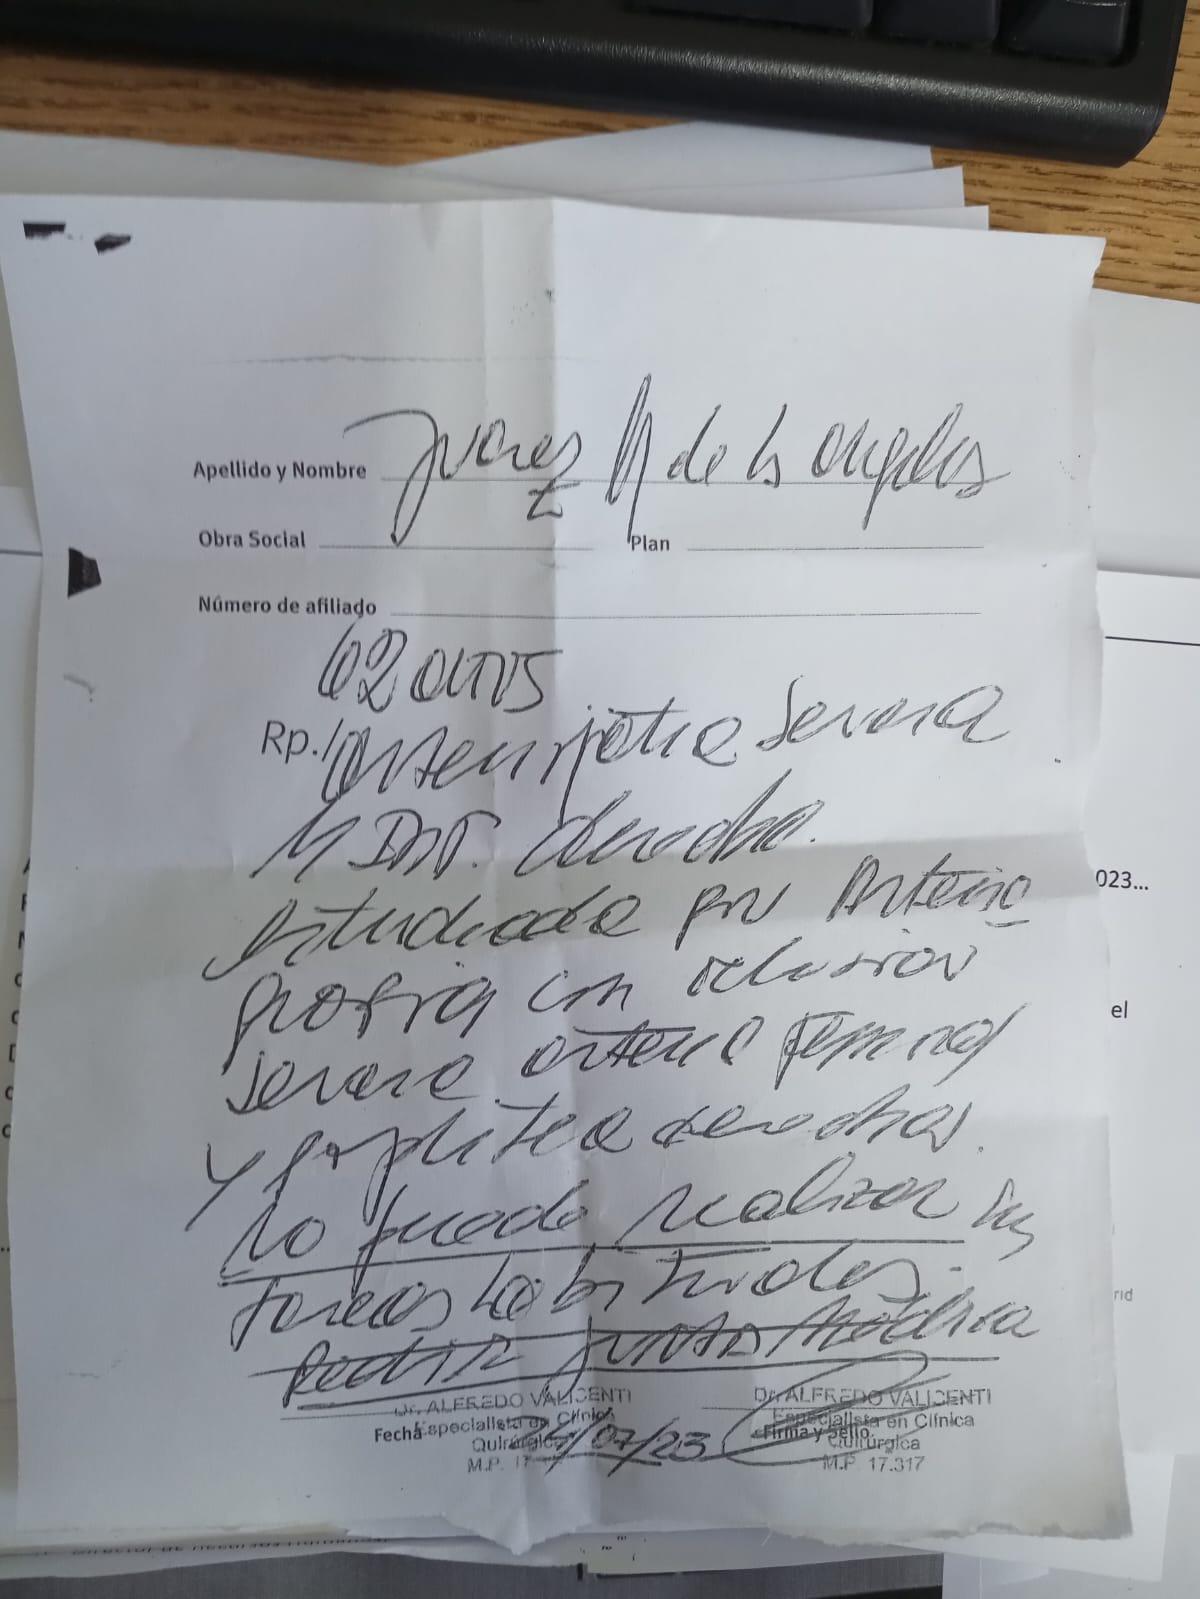 Apellido y Nombre Juarez M de los angeles
Obra Social Plan
Número de afiliado
62 años
Rp./ Arteriopatia Severa
M Inf. derecha.
estudiada por Arterio
grafia con oclusion
severa arteria femoral
y poplitea derechas.
No puede realizar sus
tareas habituales.
Pedir junta médica
Dr. ALFREDO VALICENTI
Especialista en Clínica
Fecha 26/07/23
Quirúrgica
M.P. 17
Dr. ALFREDO VALICENTI
Especialista en Clínica
Firma y Sello
Quirúrgica
M.P. 17.317
023...
el
rid